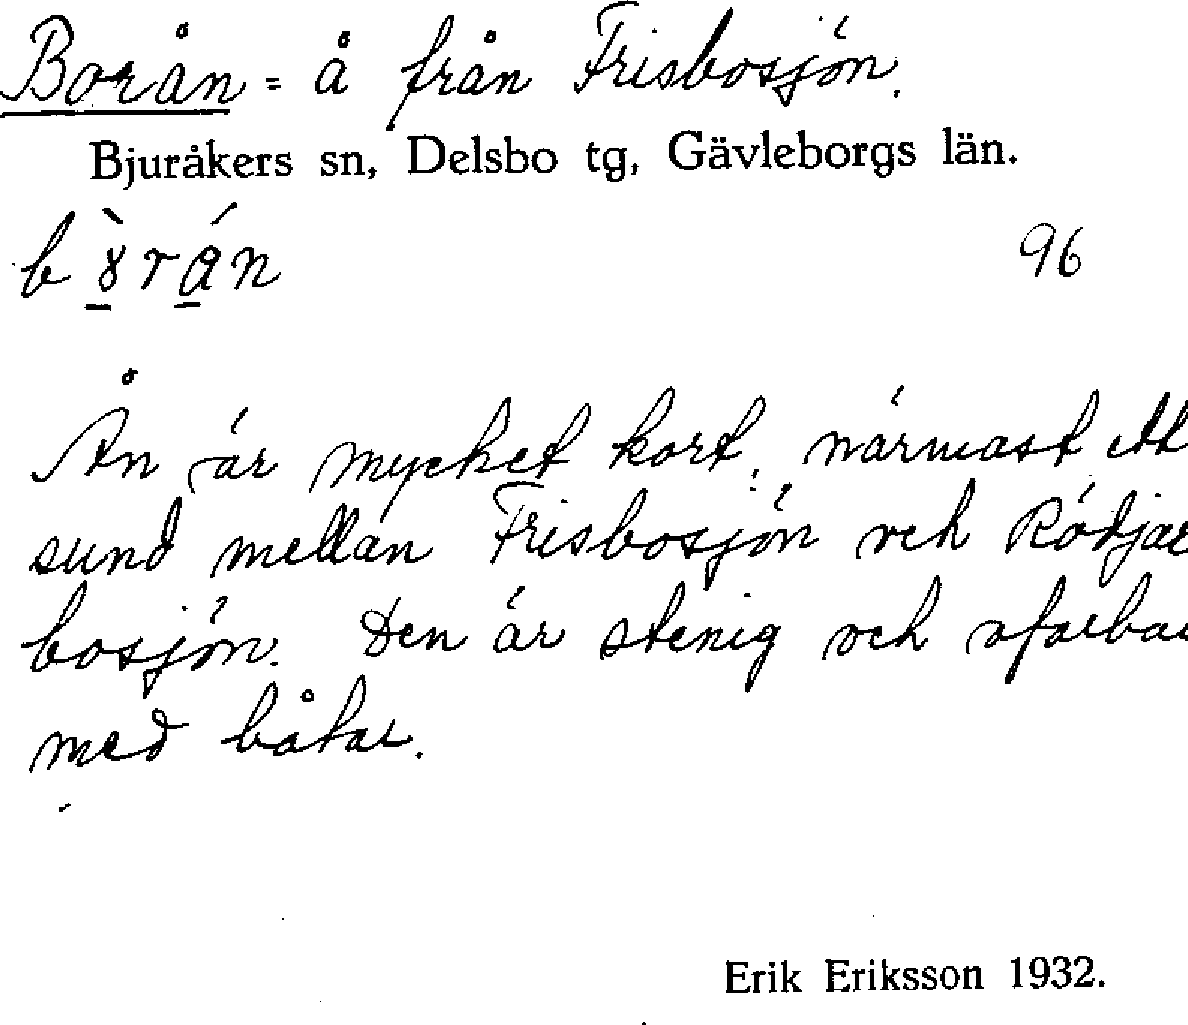 Borån = å från Frisbosjön.
Bjuråkers sn, Delsbo tg, Gävleborgs län.
b ɤ̠̀ r á̠ n 96
Ån är mycket kort, närmast ett
sund mellan Frisbosjön och Rödjar
bosjön. Den är stenig och ofarbar
med båtar.
Erik Eriksson 1932.